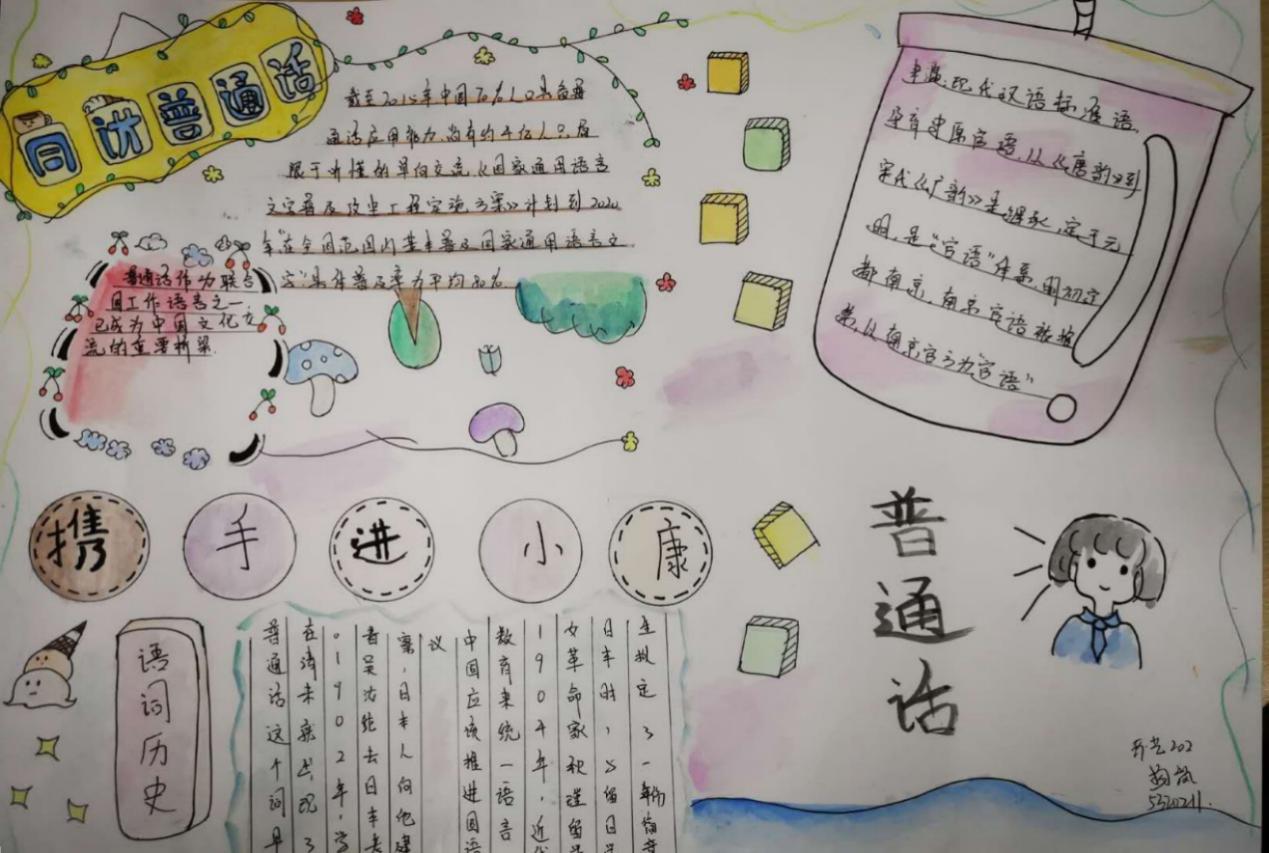 同讲普通话
截至2015年中国70%人口具备普
通话应用能力,尚有约4亿人只局
限于听懂的单向交流《国家通用语言
文字普及攻坚工程实施方案》计划到2020
年"在全国范围内基本普及国家通用语言文
字"具体普及率为平均80%
普通话作为联合
国工作语言之一
已成为中国文化交
流的重要桥梁
来源:现代汉语标准语,
孕育中原官语,从《唐韵》到
宋代《广韵》是继承,定于元
明,是"官语"体系,明初定
都南京,南京官语被推
崇,以南京官 为"官语"
携手进小康
普通话
语词历史
普通话这个词早
在清末就出现了
。1902年,学
者吴汝纶去日本考
察,日本人向他建
议
中国应该推进国语
教育来统一语言
1904年,近代
女革命家秋瑾留学
日本时,与留日学
生拟定了一份
202
5320211.